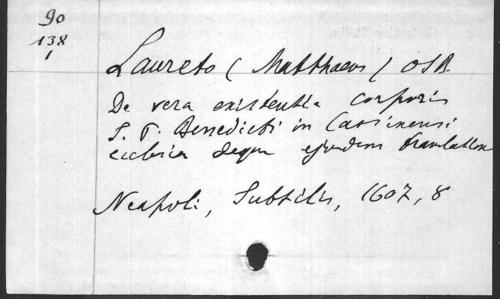 90
138
1
Laureto (Matthaeus) OSB.
De vera existentia corporis
S. P. Benedicti in Casinensi
ecclesia deque ejusdem translatione
Neapoli, Subtilis, 1607, 8